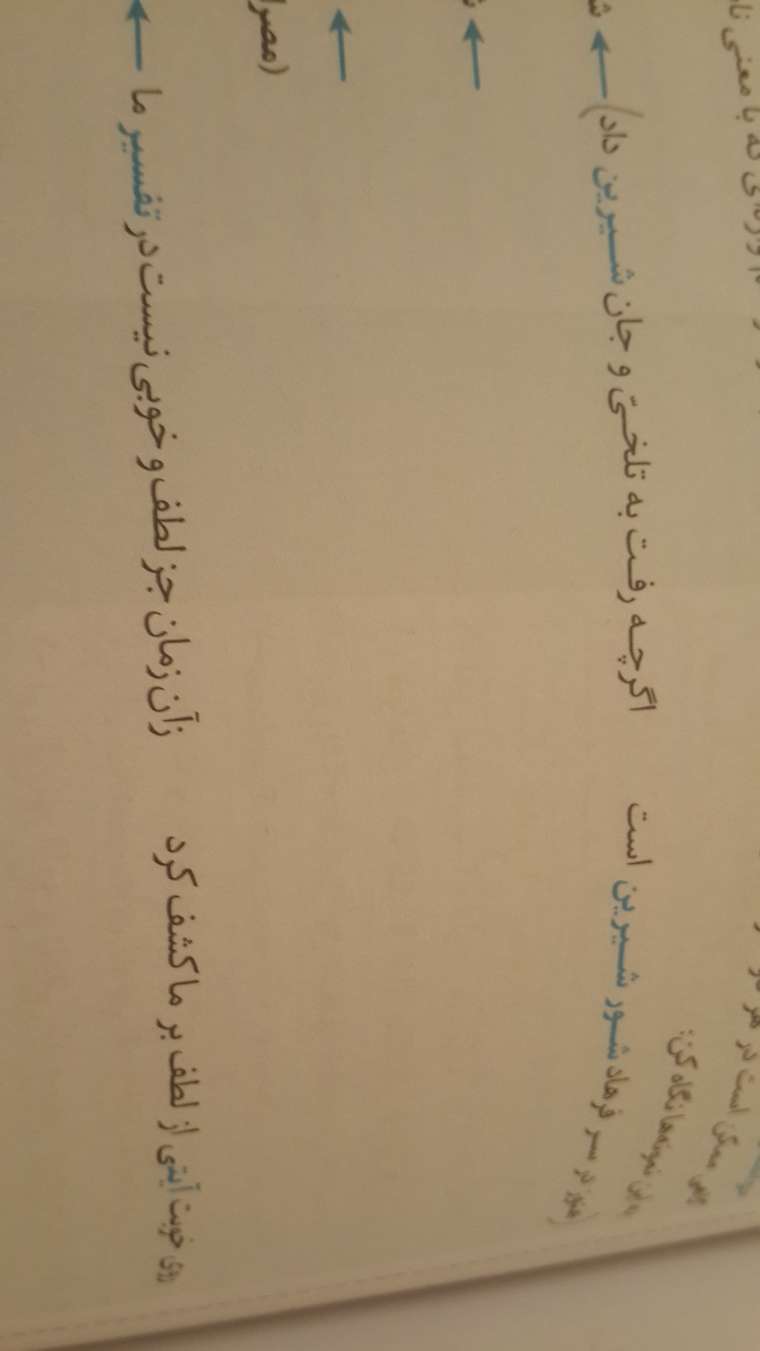 با معنی
است در هر
نگاه کن:
در سر فرهاد شور شیرین است اگرچه رفت به تلخی و جان شیرین داد) ←
←
←
(مصرا
روی خوبت آیتی از لطف بر ما کشف کرد زآن زمان جز لطف و خوبی نیست در تفسیر ما ←